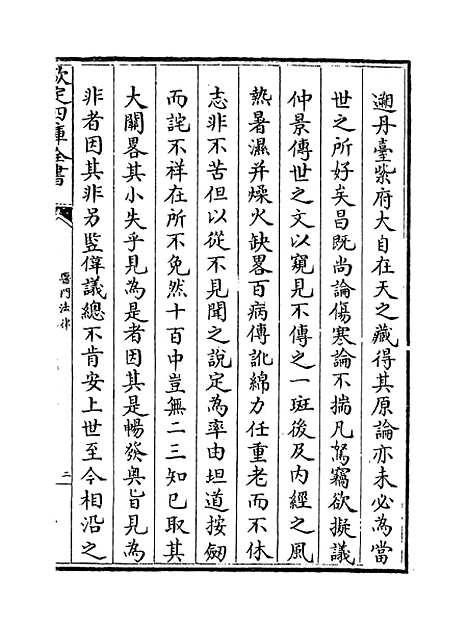 遡丹臺紫府大自在天之藏得其原論亦未必為當
世之所好矣昌既尚論傷寒論不揣凡駑竊欲擬議
仲景傳世之文以窺見不傳之一斑後及内經之風
熱暑濕并燥火缺畧百病傳訛綿力任重老而不休
志非不苦但以從不見聞之說定為率由坦道按劒
而詫不祥在所不免然十百中豈無二三知已取其
大關畧其小失乎見為是者因其是暢發奥旨見為
非者因其非另監偉議總不肯安上世至今相沿之
欽定四庫全書
醫門法律
二